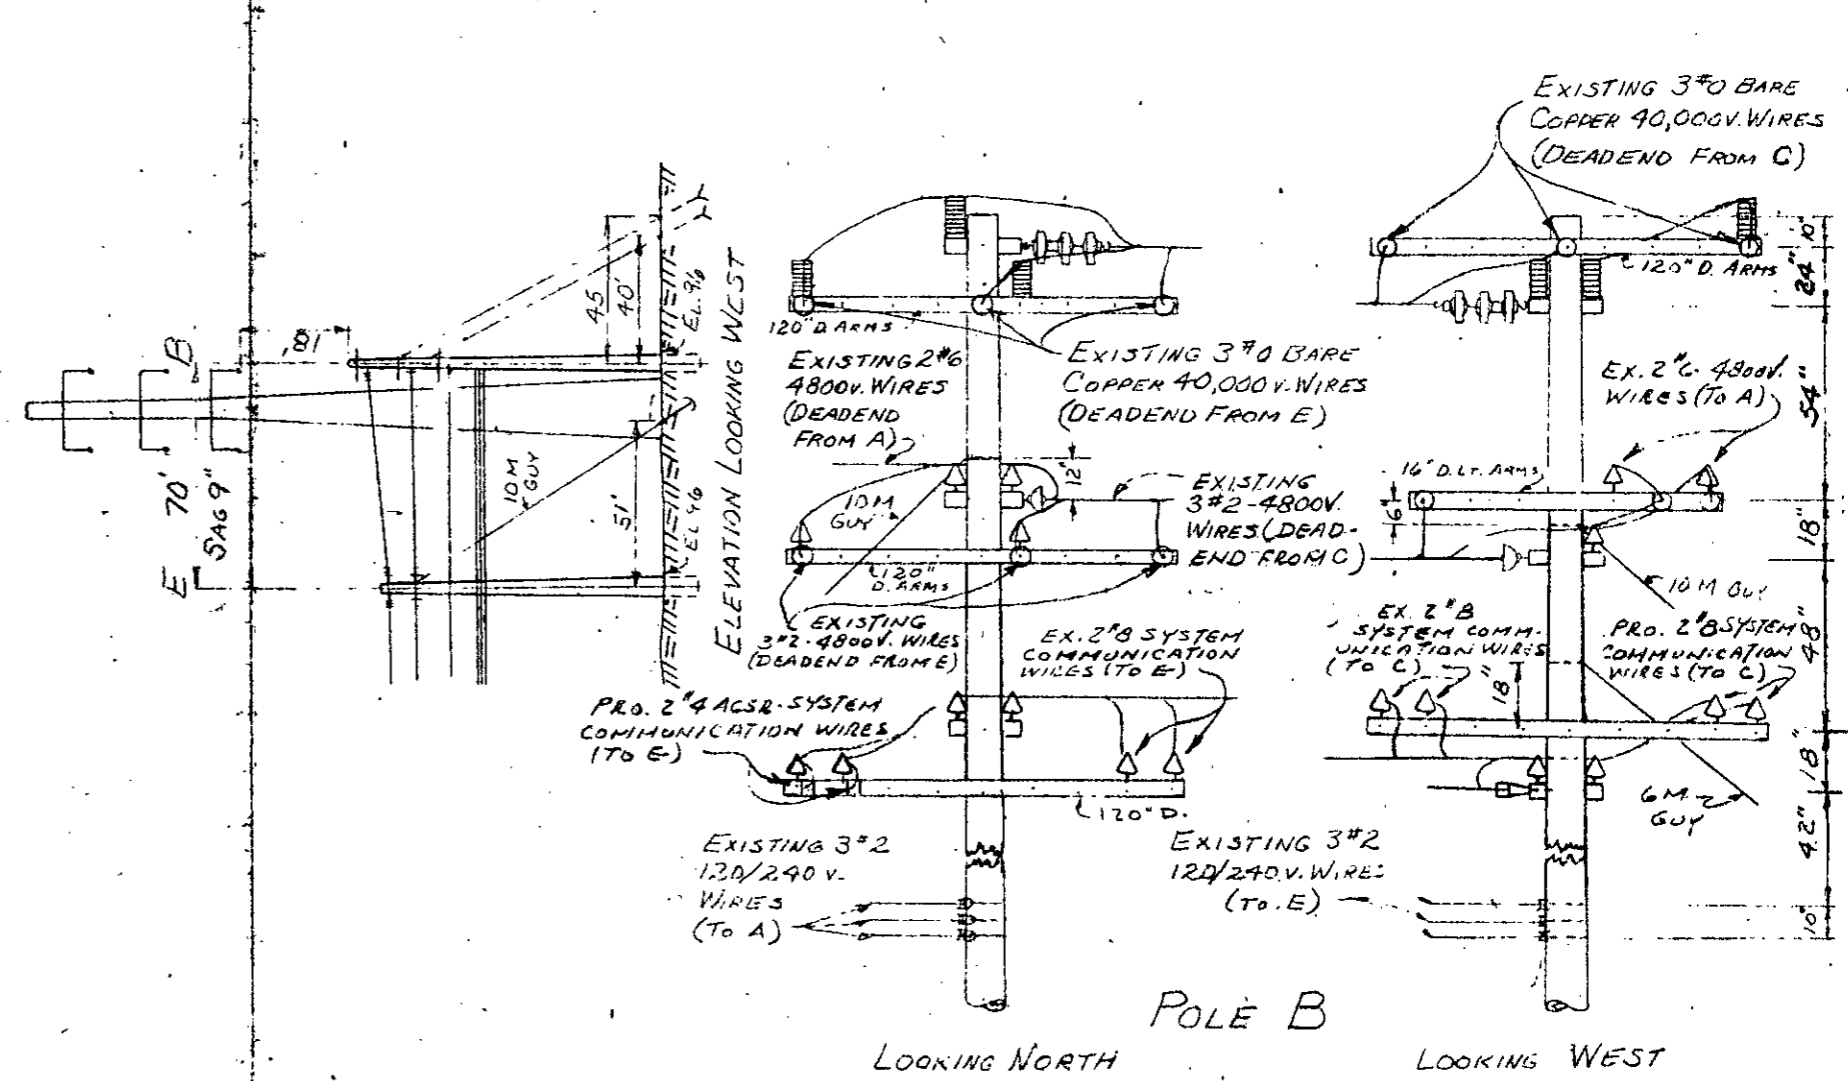 B
E
70'
SAG 9"
18'
45
40'
EL 96
10 M
GUY
51'
EL 96
ELEVATION LOOKING WEST
120" D ARMS
EXISTING 2#6
4800V. WIRES
(DEADEND
FROM A)
EXISTING 3#0 BARE
COPPER 40,000V. WIRES
(DEADEND FROM E)
12"
10M
GUY
EXISTING
3#2-4800V.
WIRES (DEAD-
END FROM C)
120"
D. ARMS
EXISTING
3#2-4800V. WIRES
(DEADEND FROM E)
EX. 2#8 SYSTEM
COMMUNICATION
WIRES (TO E)
PRO. 2#4 ACSR-SYSTEM
COMMUNICATION WIRES
(TO E)
120" D.
EXISTING 3#2
120/240 V.
WIRES
(TO A)
LOOKING NORTH
EXISTING 3#0 BARE
COPPER 40,000V. WIRES
(DEADEND FROM C)
120" D. ARMS
10"
24"
EX. 2#6-4800V.
WIRES (TO A)
54"
D. LT. ARMS
6"
18"
10M GUY
EX. 2#8
SYSTEM COMM-
UNICATION WIRES
(TO C)
PRO. 2#8 SYSTEM
COMMUNICATION
WIRES (TO C)
48"
18"
18"
6M
GUY
42"
EXISTING 3#2
120/240V. WIRE
(TO E)
10"
POLE B
LOOKING WEST